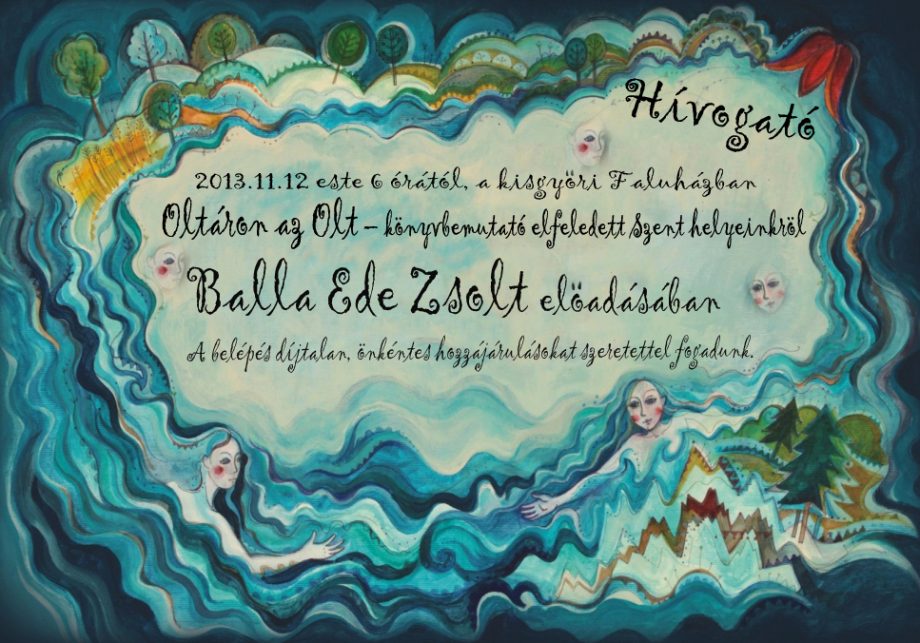 Hívogató
2013.11.12 este 6 órától, a kisgyőri Faluházban
Oltáron az Olt – könyvbemutató elfeledett szent helyeinkről
Balla Ede Zsolt előadásában
A belépés díjtalan, önkéntes hozzájárulásokat szeretettel fogadunk.